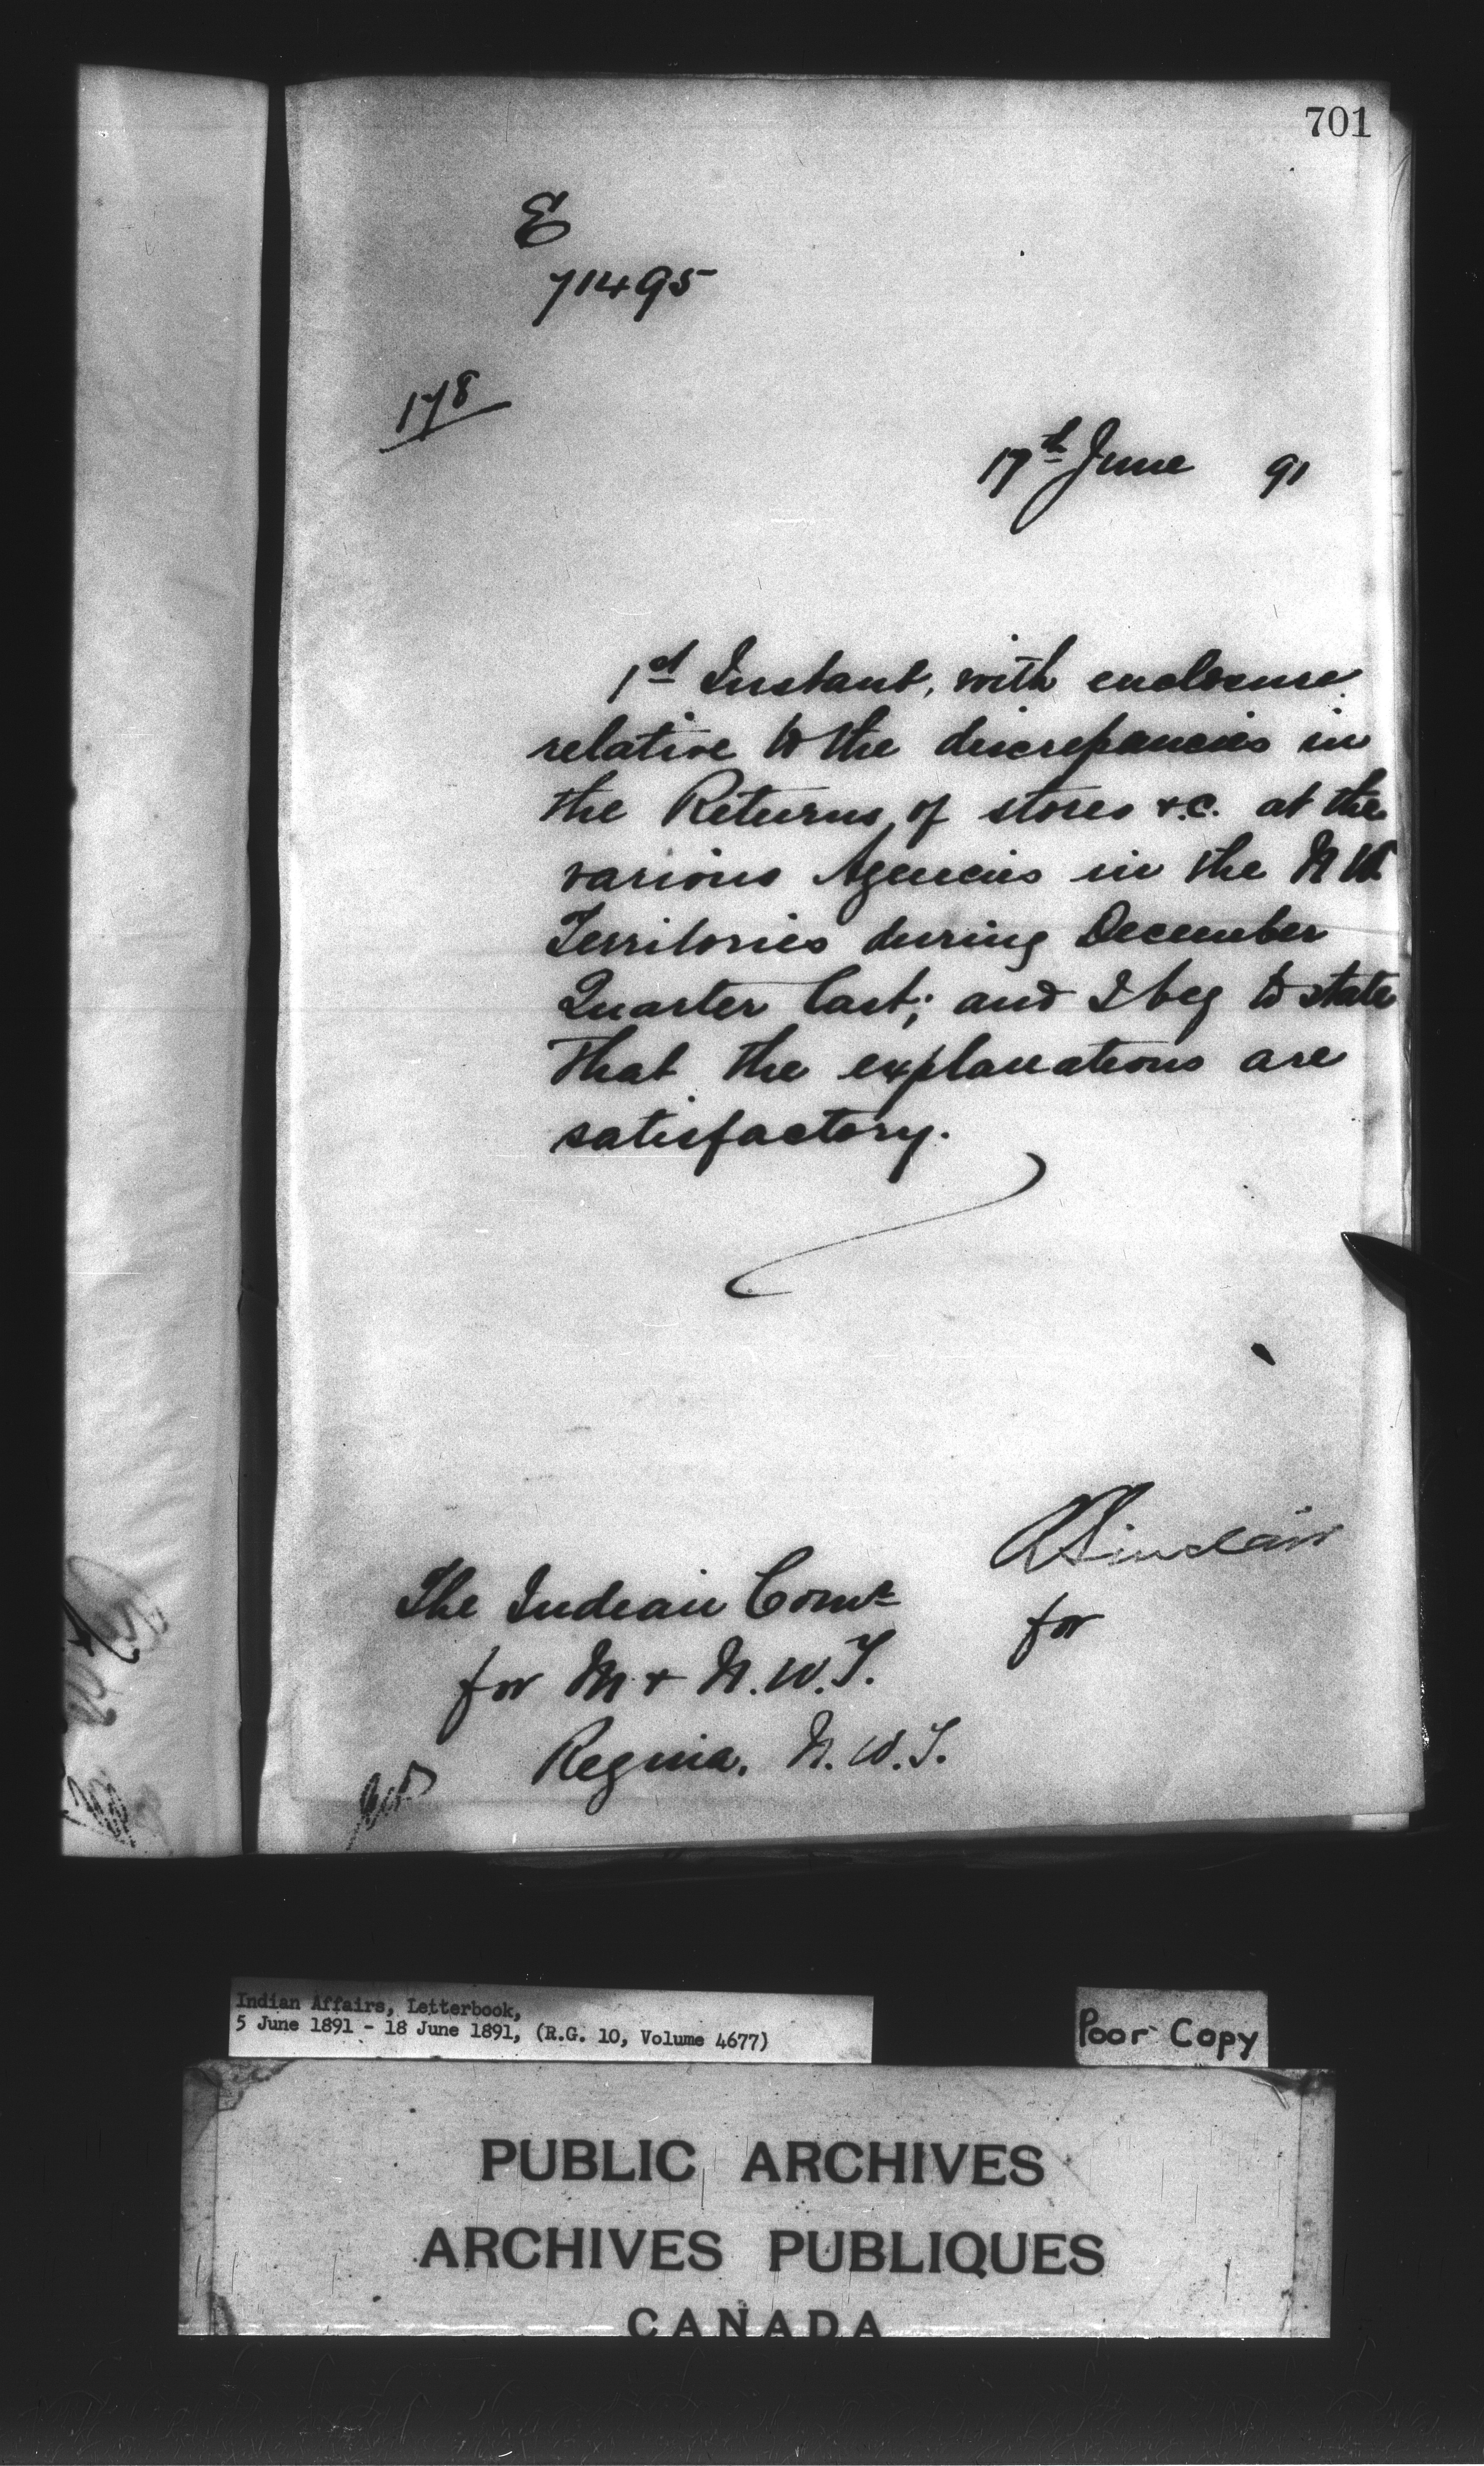 701
E
71495
178
17th June 91
1st Instant, with enclosure
relative to the discrepancies in
the Returns of stores &.c. at the
various Agencies in the N W
Territories during December
Quarter last; and I beg to state
that the explanations are
satisfactory.
R Sinclair
for
The Indian Comr
for M & N.W.T.
Regina, N.W.T.
Indian Affairs, Letterbook,
5 June 1891 - 18 June 1891, (R.G. 10, Volume 4677)
Poor Copy
PUBLIC ARCHIVES
ARCHIVES PUBLIQUES
CANADA